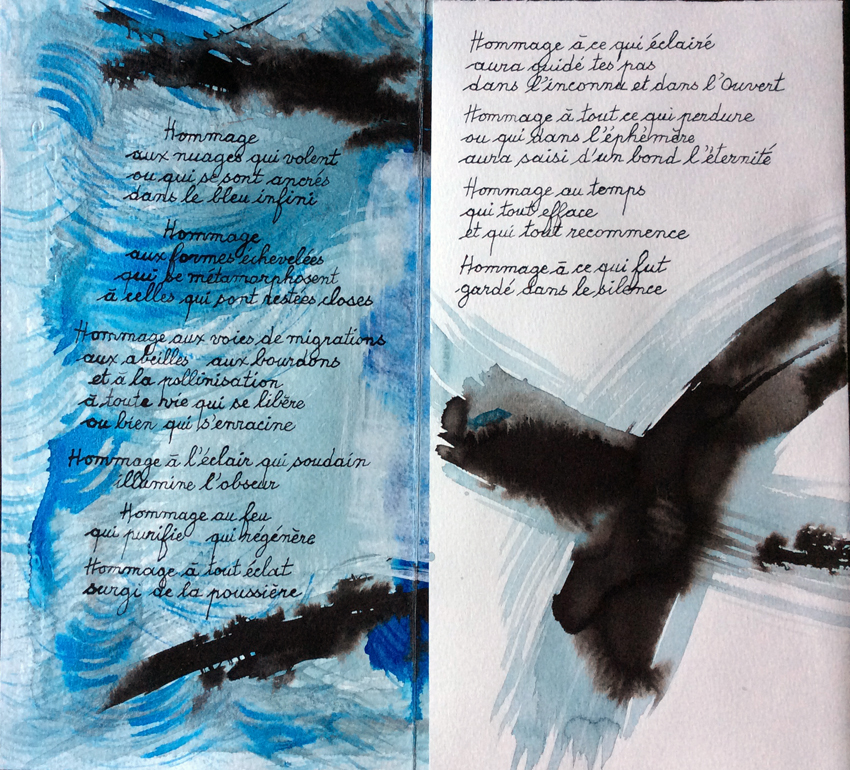 Hommage
aux nuages qui volent
ou qui se sont ancrés
dans le bleu infini
Hommage
aux formes échevelées
qui se métamorphosent
à celles qui sont restées closes
Hommage aux voies de migrations
aux abeilles aux bourdons
et à la pollinisation
à toute vie qui se libère
ou bien qui s'enracine
Hommage à l'éclair qui soudain
illumine l'obscur
Hommage au feu
qui purifie qui régénère
Hommage à tout éclat
surgi de la poussière
Hommage à ce qui éclairé
aura guidé tes pas
dans l'inconnu et dans l'Ouvert
Hommage à tout ce qui perdure
ou qui dans l'éphémère
aura saisi d'un bond l'éternité
Hommage au temps
qui tout efface
et qui tout recommence
Hommage à ce qui fut
gardé dans le silence